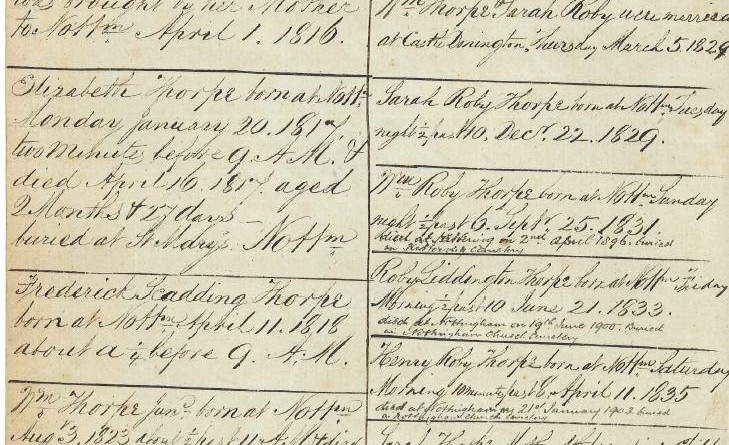 was brought by her Mother
to Nottm April 1. 1816.
Elizabeth Thorpe born at Nottm
Monday January 20. 1817,
two Minutes before 9 A.M. &
died April 16. 1817. aged
2 Months & 27 days —
buried at St Mary's Nottm
Frederick Scadding Thorpe
born at Nottm April 11. 1818
about a ¼ before 9. A.M.
Wm Thorpe Junr born at Nottm
Aug 3, 1823 about ½ past 11
Wm Thorpe Sarah Roby were married
at Castle Donington, Thursday March 5. 1829
Sarah Roby Thorpe born at Nottm Tuesday
night ½ past 10. Decr 22. 1829.
Wm Roby Thorpe born at Nottm Sunday
night ½ past 6. Septr 25. 1831.
died at Kettering on 2nd April 1896. buried
in Cemetery
Roby Liddington Thorpe born at Nottm Friday
Morning ½ past 10 June 21. 1833.
died at Nottingham on 19th June 1900. Buried
in Nottingham Church Cemetery
Henry Roby Thorpe born at Nottm Saturday
Morning 10 minutes past 6, April 11. 1835
died at Nottingham on 21st January 1903 buried
in Nottingham Church Cemetery
Sarah Thorpe